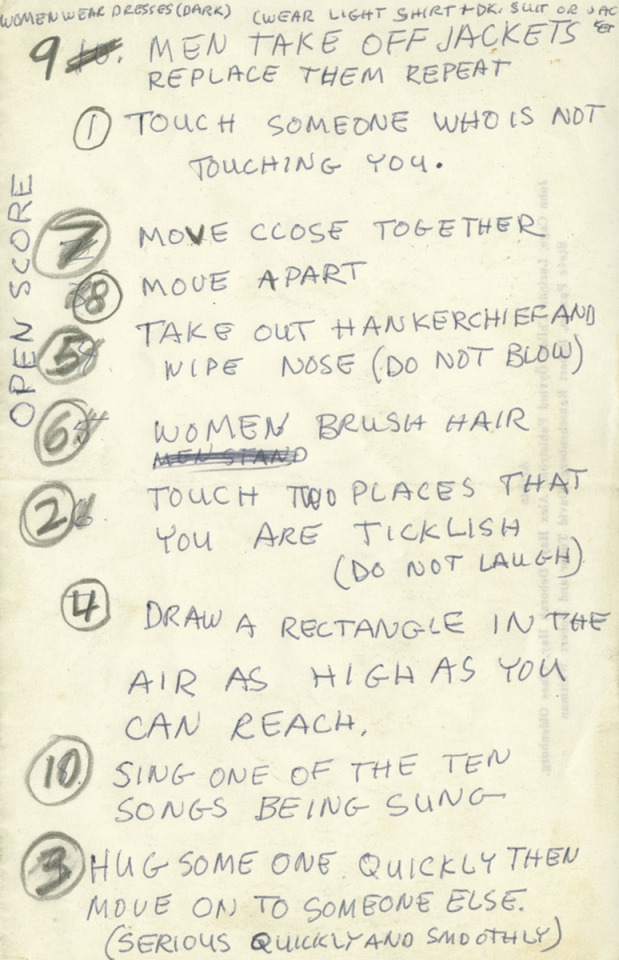 WOMEN WEAR DRESSES (DARK) (WEAR LIGHT SHIRT + DK. SUIT OR JACKET
9 MEN TAKE OFF JACKETS
REPLACE THEM REPEAT
① TOUCH SOMEONE WHO IS NOT
TOUCHING YOU.
OPEN SCORE
7 MOVE CLOSE TOGETHER
8 MOVE APART
5 TAKE OUT HANKERCHIEF AND
WIPE NOSE (DO NOT BLOW)
6 WOMEN BRUSH HAIR
MEN STAND
2 TOUCH TWO PLACES THAT
YOU ARE TICKLISH
(DO NOT LAUGH)
4 DRAW A RECTANGLE IN THE
AIR AS HIGH AS YOU
CAN REACH.
10 SING ONE OF THE TEN
SONGS BEING SUNG
3 HUG SOME ONE QUICKLY THEN
MOVE ON TO SOMEONE ELSE.
(SERIOUS QUICKLY AND SMOOTHLY)